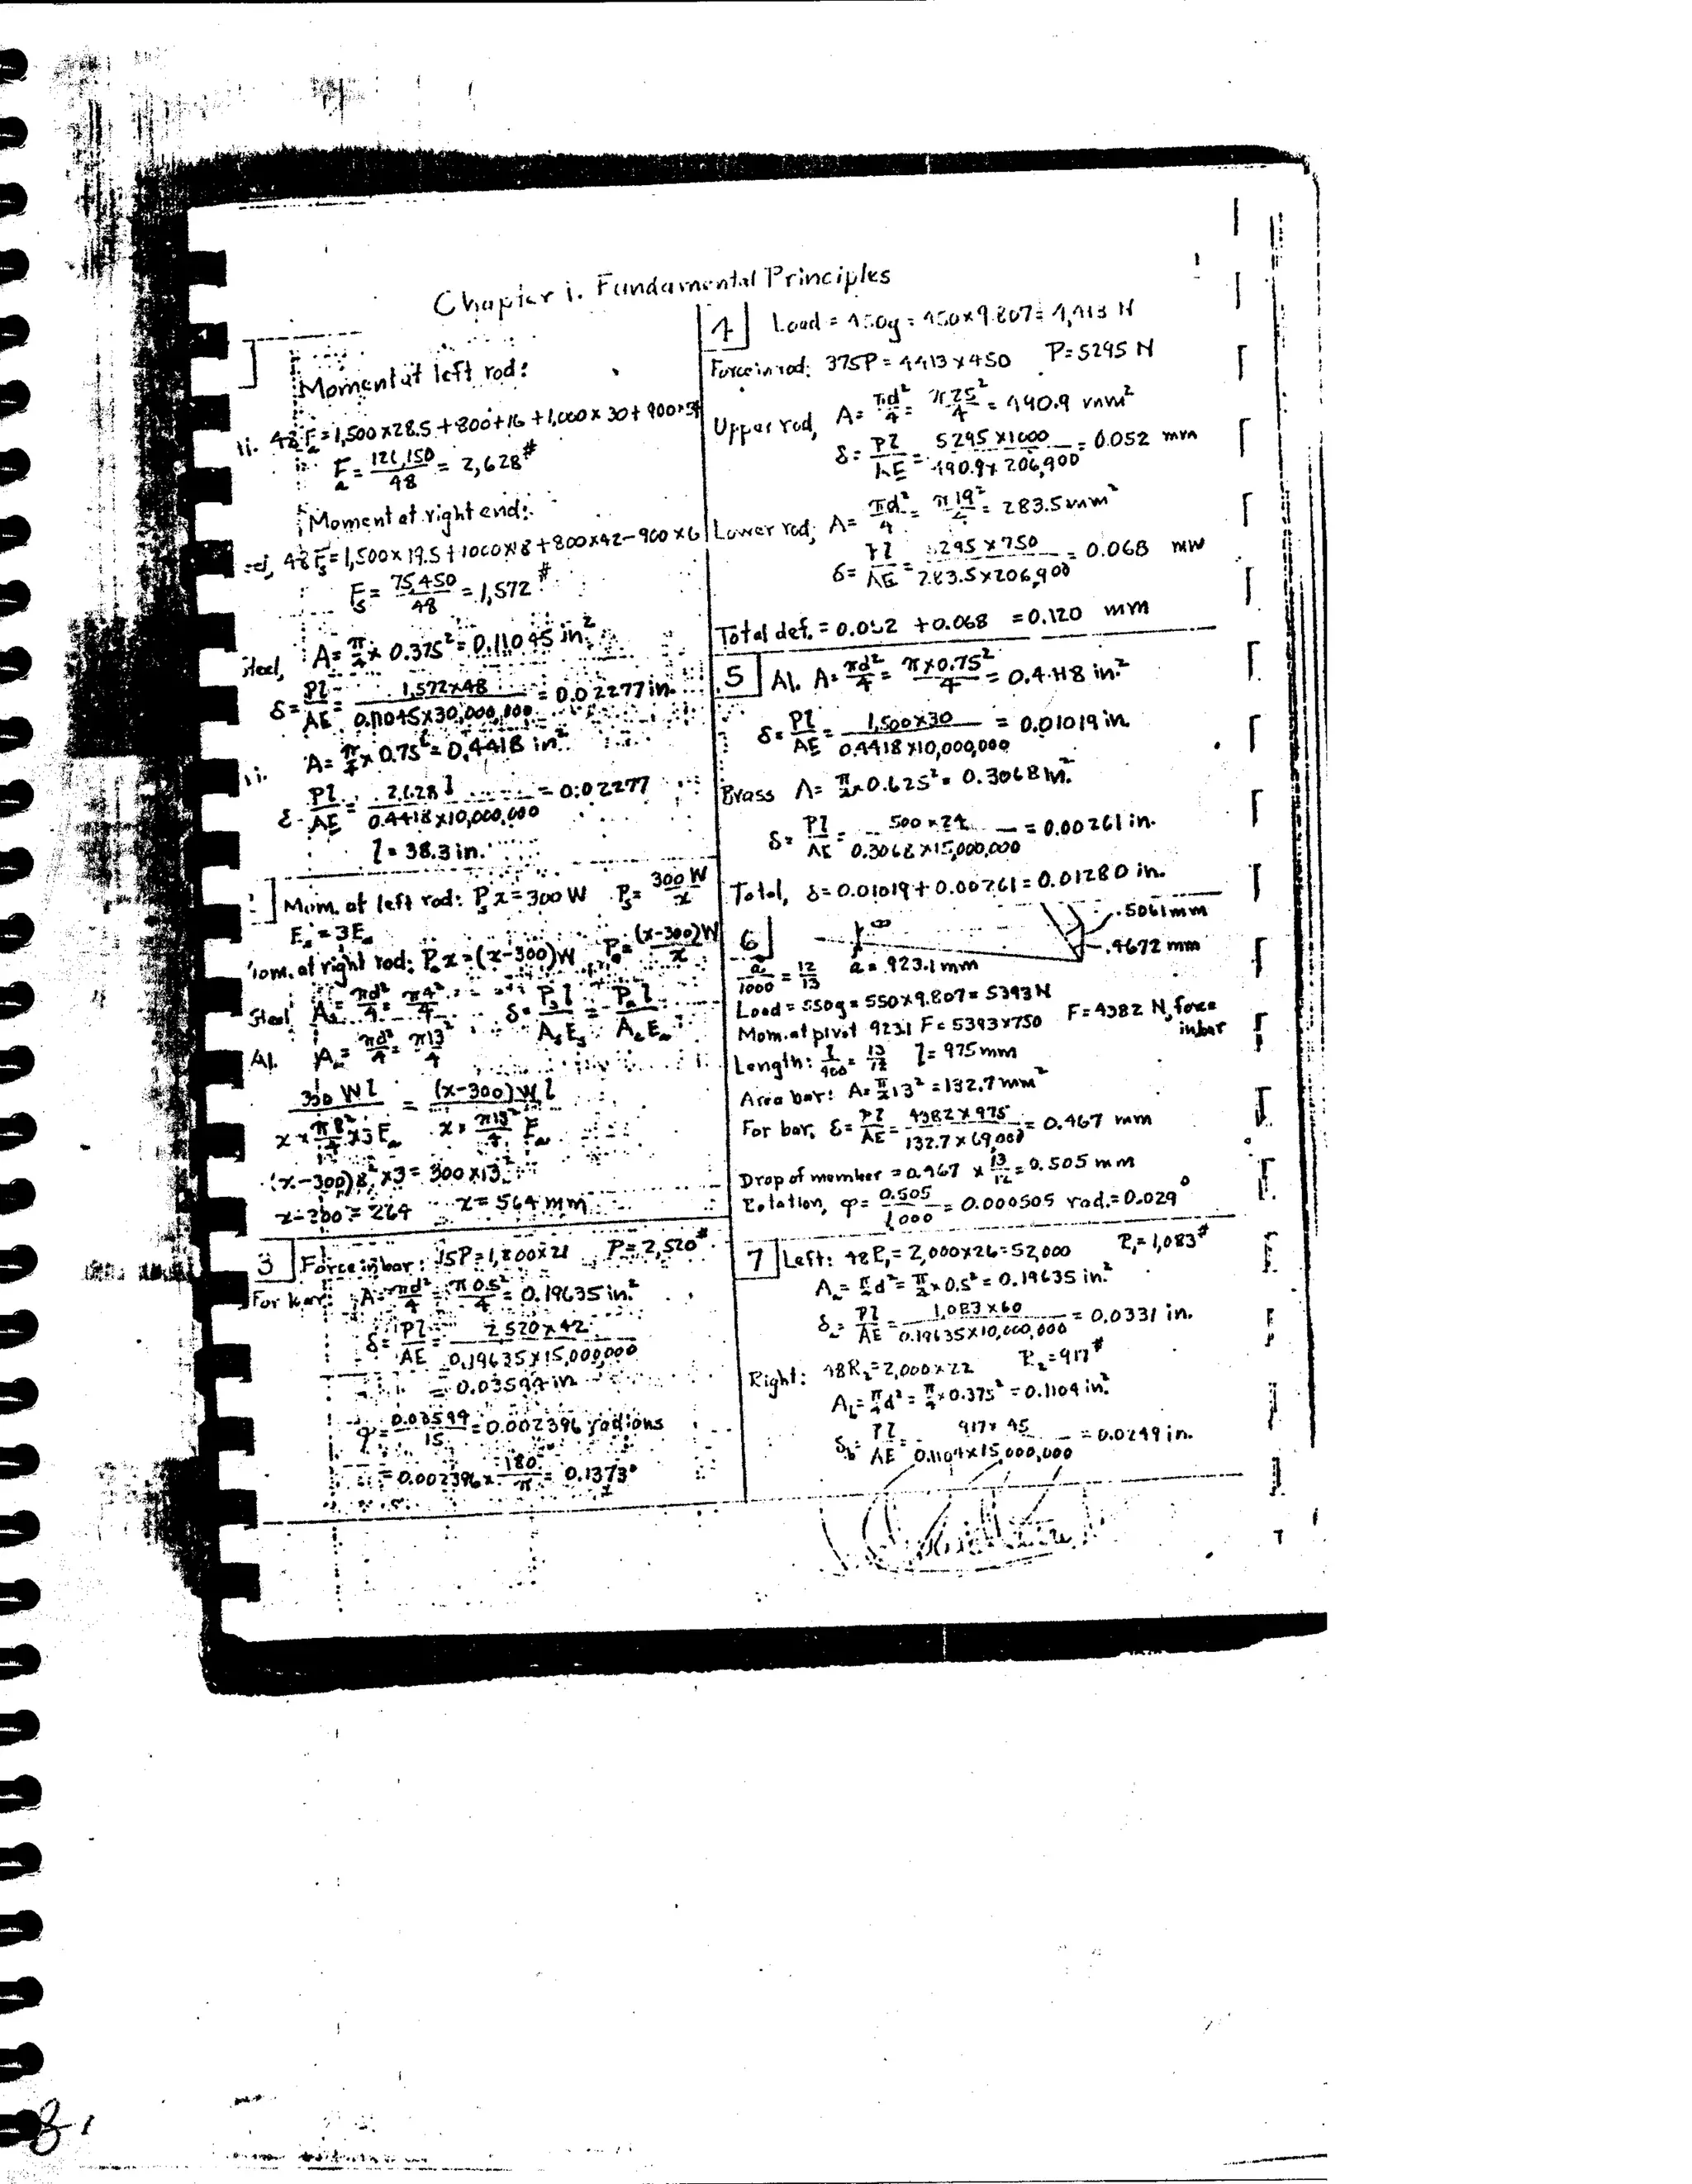 Chapter 1. Fundamental Principles
Moment at left rod:
48 Fa = 1,500 x 28.5 + 800 + 16 + 1,000 x 30 + 900 x 54
Fa = 126,150 / 48 = 2,628#
Moment at right end:
48 Fs = 1,500 x 19.5 + 1000 x 18 + 800 x 42 - 900 x 6
Fs = 75,450 / 48 = 1,572#
Steel, A = π/4 x 0.375² = 0.11045 in²
δ = Pl/AE = 1,572 x 48 / 0.11045 x 30,000,000 = 0.02277 in.
A = π/4 x 0.75² = 0.4418 in²
δ = Pl/AE = 2,628 l / 0.4418 x 10,000,000 = 0.02277
l = 38.3 in.
Mom. at left rod: Ps x = 300 W Ps = 300 W / x
Es = 3Ea
Mom. at right rod: Pa x = (x-300)W Pa = (x-300)W / x
Steel As = πd²/4 = δ = Ps l / As Es = Pa l / Aa Ea
Al. Aa = πd²/4 = π13²/4
300 W l / x x π8²/4 x 3Ea = (x-300)W l / x x π13²/4 Ea
(x-300)8² x 3 = 300 x 13²
x-300 = 264 x = 564 mm
3 Force in bar: 15P = 1,800 x 21 P = 2,520#
For bar: A = πd²/4 = π0.5²/4 = 0.19635 in.²
δ = Pl/AE = 2520 x 42 / 0.19635 x 15,000,000
= 0.03594 in
φ = 0.03594 / 15 = 0.002396 radians
= 0.002396 x 180/π = 0.1373°
4 Load = 450g = 450 x 9.807 = 4,413 N
Force in rod: 375P = 4413 x 450 P = 5295 N
Upper rod, A = πd²/4 = π25²/4 = 490.9 mm²
δ = Pl/AE = 5295 x 1000 / 490.9 x 206,900 = 0.052 mm
Lower rod, A = πd²/4 = π19²/4 = 283.5 mm²
δ = Pl/AE = 5295 x 750 / 283.5 x 206,900 = 0.068 mm
Total def. = 0.052 + 0.068 = 0.120 mm
5 Al. A = πd²/4 = π x 0.75²/4 = 0.4418 in.²
δ = Pl/AE = 1,500 x 30 / 0.4418 x 10,000,000 = 0.01019 in.
Brass A = π/4 x 0.625² = 0.3068 in.²
δ = Pl/AE = 500 x 24 / 0.3068 x 15,000,000 = 0.00261 in.
Total, δ = 0.01019 + 0.00261 = 0.01280 in.
6 .5061 mm
.4672 mm
a/1000 = 12/13 a = 923.1 mm
Load = 550g = 550 x 9.807 = 5393 N
Mom. at pivot 923.1 F = 5393 x 750 F = 4382 N, force in bar
Length: l/900 = 13/12 l = 975 mm
Area bar: A = π/4 13² = 132.7 mm²
For bar, δ = Pl/AE = 4382 x 975 / 132.7 x 69,000 = 0.467 mm
Drop of member = 0.467 x 13/12 = 0.505 mm
Rotation, φ = 0.505 / 1000 = 0.000505 rad. = 0.029°
7 Left: 48 R₁ = 2,000 x 26 = 52,000 R₁ = 1,083#
Aa = π/4 d² = π/4 x 0.5² = 0.19635 in.²
δa = Pl/AE = 1,083 x 60 / 0.19635 x 10,000,000 = 0.0331 in.
Right: 48 R₂ = 2,000 x 22 R₂ = 917#
Ab = π/4 d² = π/4 x 0.375² = 0.1104 in.²
δb = Pl/AE = 917 x 45 / 0.1104 x 15,000,000 = 0.0249 in.